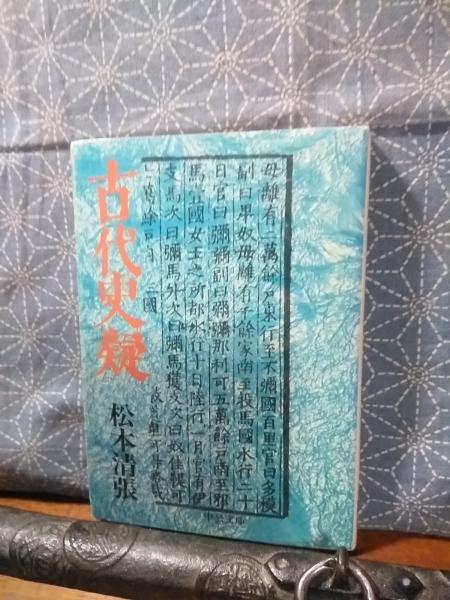 古代史疑
松本清張
母離有二萬餘戸東行至不彌國百里官曰多模
副曰卑奴母離有千餘家南至投馬國水行二十
日官曰彌彌副曰彌彌那利可五萬餘戸南至邪
馬壹國女王之所都水行十日陸行一月官有伊
支馬次曰彌馬升次曰彌馬獲支次曰奴佳鞮可
七萬餘戸
中公文庫